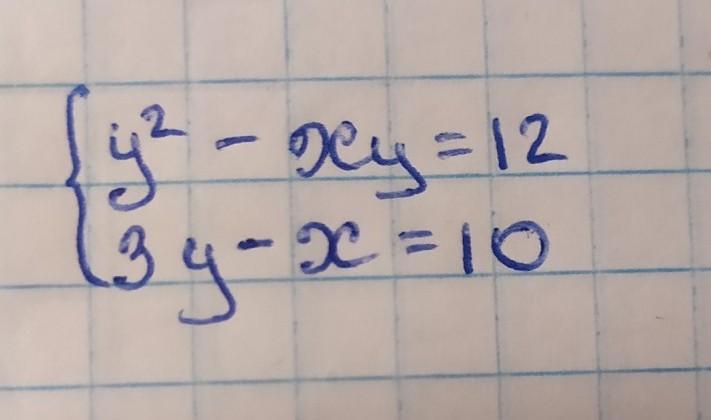 y² - xy = 12
3y - x = 10